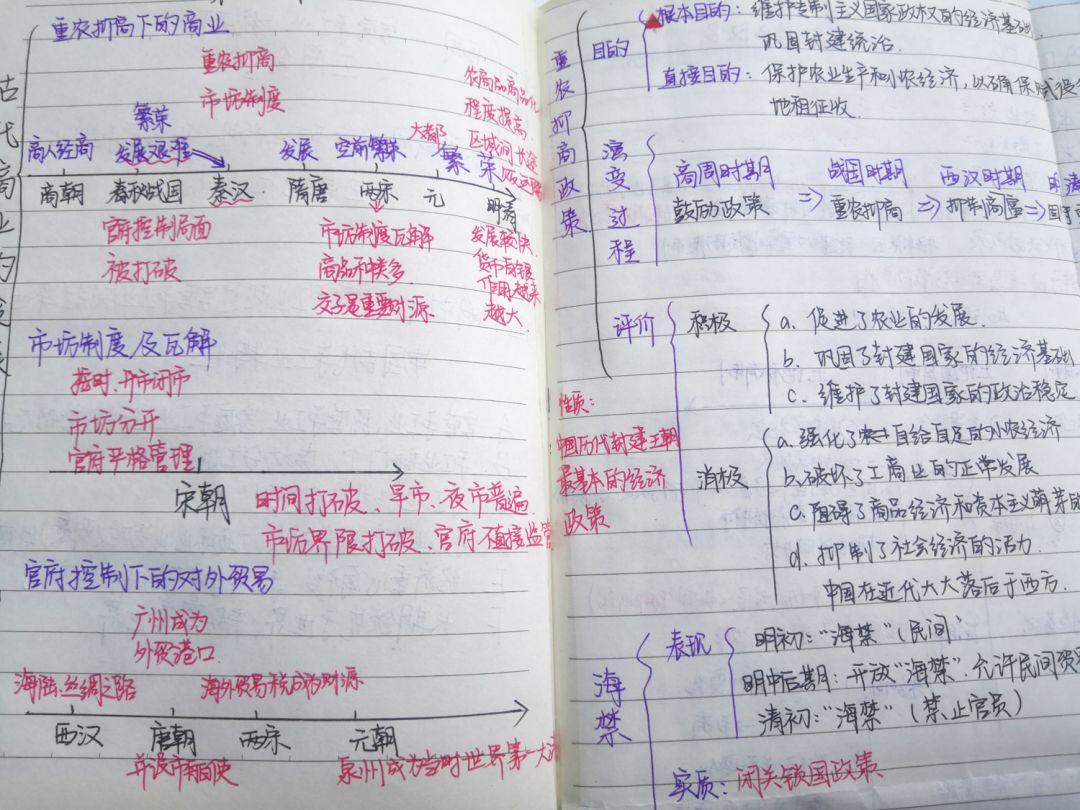 重农抑商下的商业
重农抑商
市坊制度
农商品商品化
程度提高
区域间长途
贩运
繁荣
大都
商人经商 发展艰难 发展 空前繁荣 繁荣
商朝 春秋战国 秦汉 隋唐 两宋 元 明清
官府控制局面
被打破
市坊制度瓦解
商品种类多
交子是重要财源
发展较快
货币白银
作用越来
越大
市坊制度及瓦解
按时开市闭市
市坊分开
官府严格管理
宋朝
时间打破、早市、夜市普遍
市坊界限打破、官府不直接监管
官府控制下的对外贸易
广州成为
外贸港口
海陆丝绸之路 海外贸易税成为财源
西汉 唐朝 两宋 元朝
并设市舶使 泉州成为当时世界第一大
古代商业的发展
重农抑商政策
目的
根本目的：维护专制主义国家政权的经济基础
巩固封建统治.
直接目的：保护农业生产和小农经济，以确保赋役
地租征收.
演变过程
商周时期 战国时期 西汉时期 明清
鼓励政策 ⇒ 重农抑商 ⇒ 抑制商富 ⇒
评价
积极
a. 促进了农业的发展.
b. 巩固了封建国家的经济基础
c. 维护了封建国家的政治稳定
消极
a. 强化了自给自足的小农经济
b. 破坏了工商业的正常发展
c. 阻碍了商品经济和资本主义萌芽的
d. 抑制了社会经济的活力.
中国在近代大大落后于西方.
性质：
中国历代封建王朝
最基本的经济
政策
海禁
表现
明初：“海禁”（民间”
明中后期：开放“海禁”.允许民间贸易
清初：“海禁”（禁止官员）
实质：闭关锁国政策